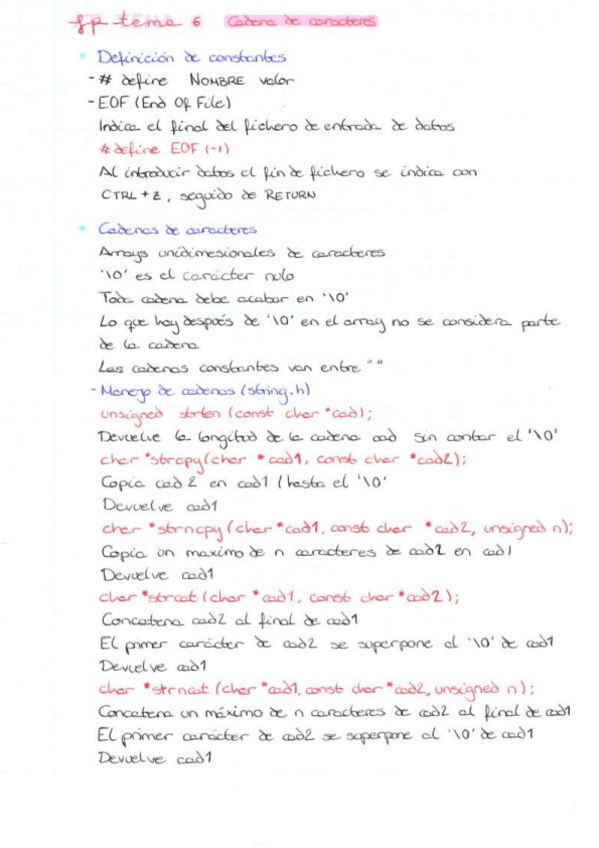 fp tema 6 Cadena de caracteres
Definición de constantes
-# define NOMBRE valor
- EOF (End Of File)
Indica el final del fichero de entrada de datos
# define EOF (-1)
Al introducir datos el fin de fichero se indica con
CTRL + Z, seguido de RETURN
Cadenas de caracteres
Arrays unidimesionales de caracteres
'\0' es el carácter nulo
Toda cadena debe acabar en '\0'
Lo que hay después de '\0' en el array no se considera parte
de la cadena
Las cadenas constantes van entre " "
- Manejo de cadenas (string.h)
unsigned strlen (const char *cad);
Devuelve la longitud de la cadena cad sin contar el '\0'
char *strcpy(char *cad1, const char *cad2);
Copia cad2 en cad1 (hasta el '\0'
Devuelve cad1
char *strncpy (char *cad1, const char *cad2, unsigned n);
Copia un maximo de n caracteres de cad2 en cad1
Devuelve cad1
char *strcat (char *cad1, const char *cad2);
Concatena cad2 al final de cad1
El primer carácter de cad2 se superpone al '\0' de cad1
Devuelve cad1
char *strncat (char *cad1, const char *cad2, unsigned n);
Concatena un máximo de n caracteres de cad2 al final de cad1
El primer carácter de cad2 se superpone al '\0' de cad1
Devuelve cad1